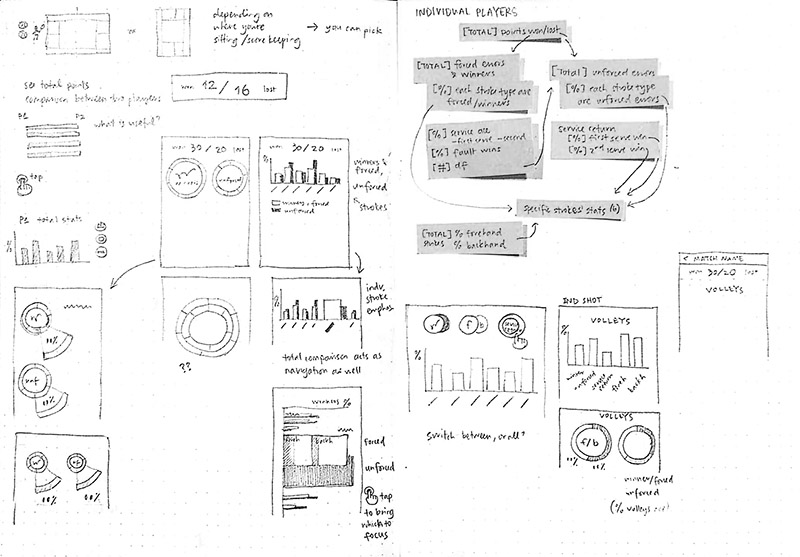 depending on
where you're
sitting/scorekeeping
→ you can pick
or
see total points
comparison between two players
won 12 / 16 lost
P1 P2
what is useful?
tap
P1 total stats
%
won 30/20 lost
unforced
won 30/20 lost
winners + forced
unforced
winners &
forced,
unforced
& strokes
w/f
00%
unf
00%
00% 00%
??
indv.
stroke
emphas
total comparison acts as
navigation as well
winners %
foreh backh
forced
unforced
tap
to bring
which to
focus
INDIVIDUAL PLAYERS
[TOTAL] points won/lost
[TOTAL] forced errors
& winners
[%] each stroke type are
forced/winners
[Total] unforced errors
[%] each stroke type
are unforced errors
[%] service ace
-first serve -second
[%] fault wins
[#] df
service return
[%] first serve win
[%] 2nd serve win
specific strokes' stats (6)
[TOTAL] % forehand
strokes % backhand
f b
%
switch between, or all?
IND SHOT
VOLLEYS
%
winner
unforced
service
return
foreh
backh
VOLLEYS
f/b
00% 00%
winner/forced
unforced
< MATCH NAME
won 30/20 lost
VOLLEYS